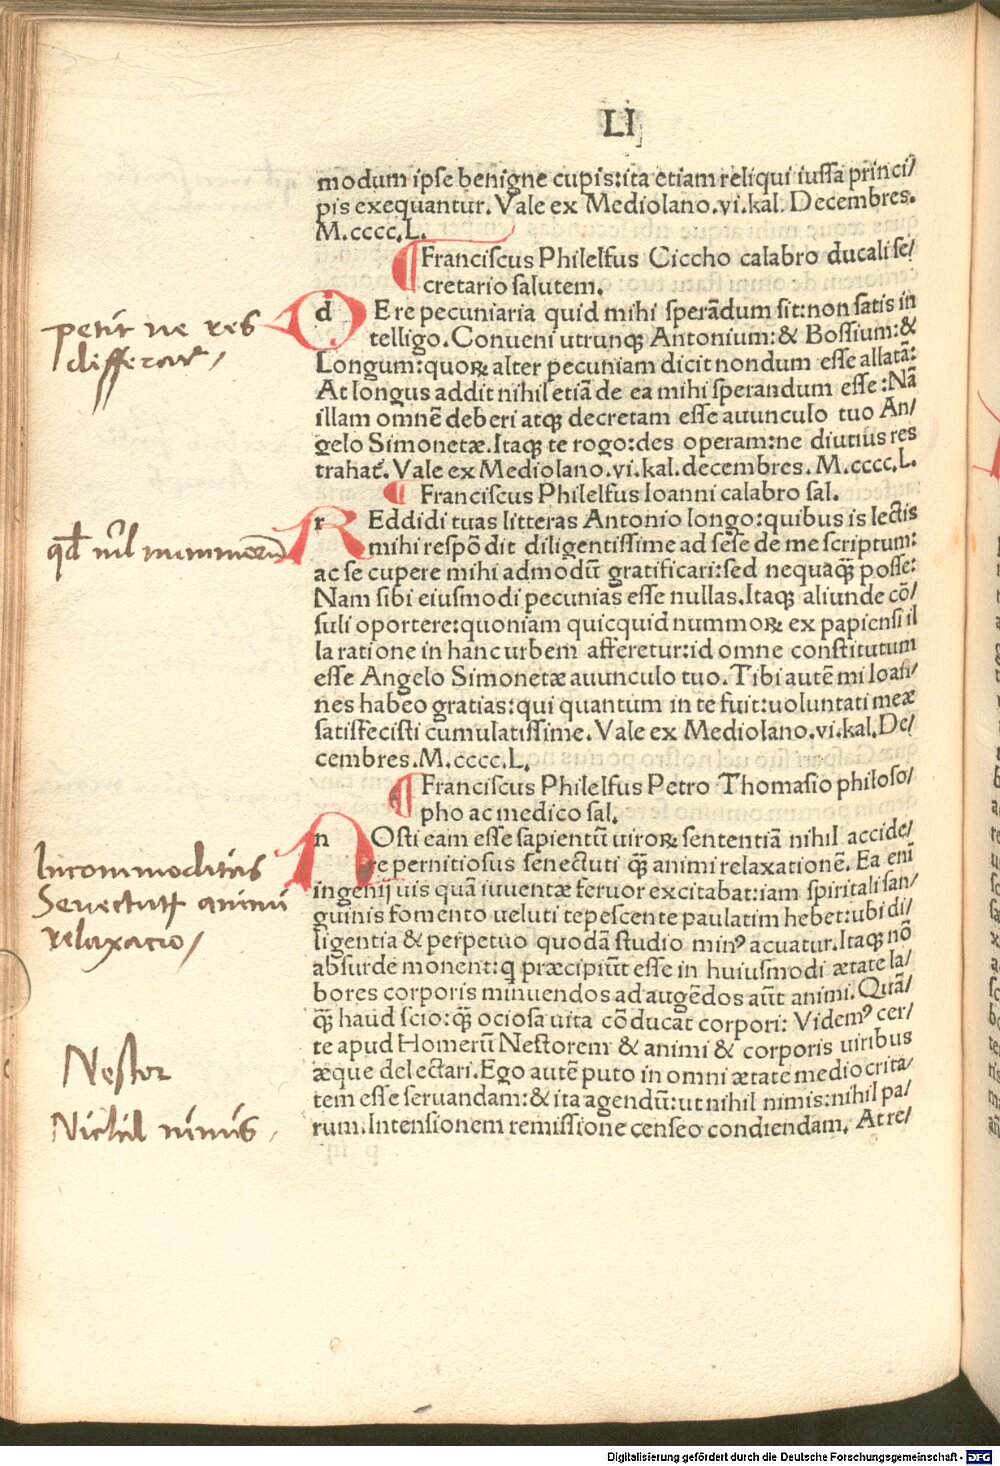 LI
modum ipse benigne cupis:ita etiam reliqui iussa princi/
pis exequantur. Vale ex Mediolano.vi.kal. Decembres.
M.cccc.L.
¶ Franciscus Philelfus Ciccho calabro ducali se/
cretario salutem.
d E re pecuniaria quid mihi sperādum sit:non satis in
telligo.Conueni utrunqꝫ Antonium:& Bossium:&
Longum:quoꝝ alter pecuniam dicit nondum esse allatā:
At longus addit nihil etiā de ea mihi sperandum esse:Nā
illam omnē deberi atqꝫ decretam esse auunculo tuo An/
gelo Simonetæ.Itaqꝫ te rogo:des operam:ne diutius res
trahat̃. Vale ex Mediolano.vi.kal.decembres. M.cccc.L.
¶ Franciscus Philelfus Ioanni calabro sal.
r Eddidi tuas litteras Antonio longo:quibus is lectis
mihi respōdit diligentissime ad sese de me scriptum:
ac se cupere mihi admodū gratificari:sed nequaqꝫ̃ posse:
Nam sibi eiusmodi pecunias esse nullas.Itaqꝫ aliunde cō/
suli oportere:quoniam quicquid nummoꝝ ex papiensi il
la ratione in hanc urbem afferetur:id omne constitutum
esse Angelo Simonetæ auunculo tuo.Tibi autē mi Ioan̄/
nes habeo gratias:qui quantum in te fuit:uoluntati meæ
satisfecisti cumulatissime. Vale ex Mediolano.vi.kal.De/
cembres.M.cccc.L.
¶ Franciscus Philelfus Petro Thomasio philoso/
pho ac medico sal.
n Osti eam esse sapientū uiroꝝ sententiā nihil accide/
re pernitiosus senectuti qꝫ̃ animi relaxationē. Ea eni̅
ingenij uis quā iuuentæ feruor excitabat:iam spiritali san/
guinis fomento ueluti tepescente paulatim hebet:ubi di/
ligentia & perpetuo quodā studio minꝰ acuatur.Itaqꝫ nō
absurde monent:q præcipiūt esse in huiusmodi ætate la/
bores corporis minuendos adaugēdos aūt animi.Quā/
qꝫ̃ haud scio:qꝫ̃ ociosa uita cōducat corpori: Videmꝰ cer/
te apud Homerū Nestorem & animi & corporis uiribus
æque delectari.Ego autē puto in omni ætate mediocrita/
tem esse seruandam:& ita agendū:ut nihil nimis:nihil pa/
rum.Intensionem remissione censeo condiendam. At re/
petit ne res
differat̃
qd̄ nil nummorum
Incommoditas
Senectutꝭ animi
relaxacio
Nestor
Nichil nimis
Digitalisierung gefördert durch die Deutsche Forschungsgemeinschaft - DFG